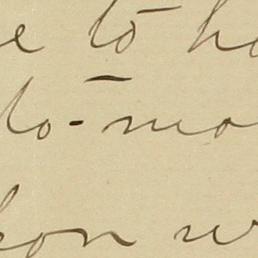 e to h
to-mo
on w